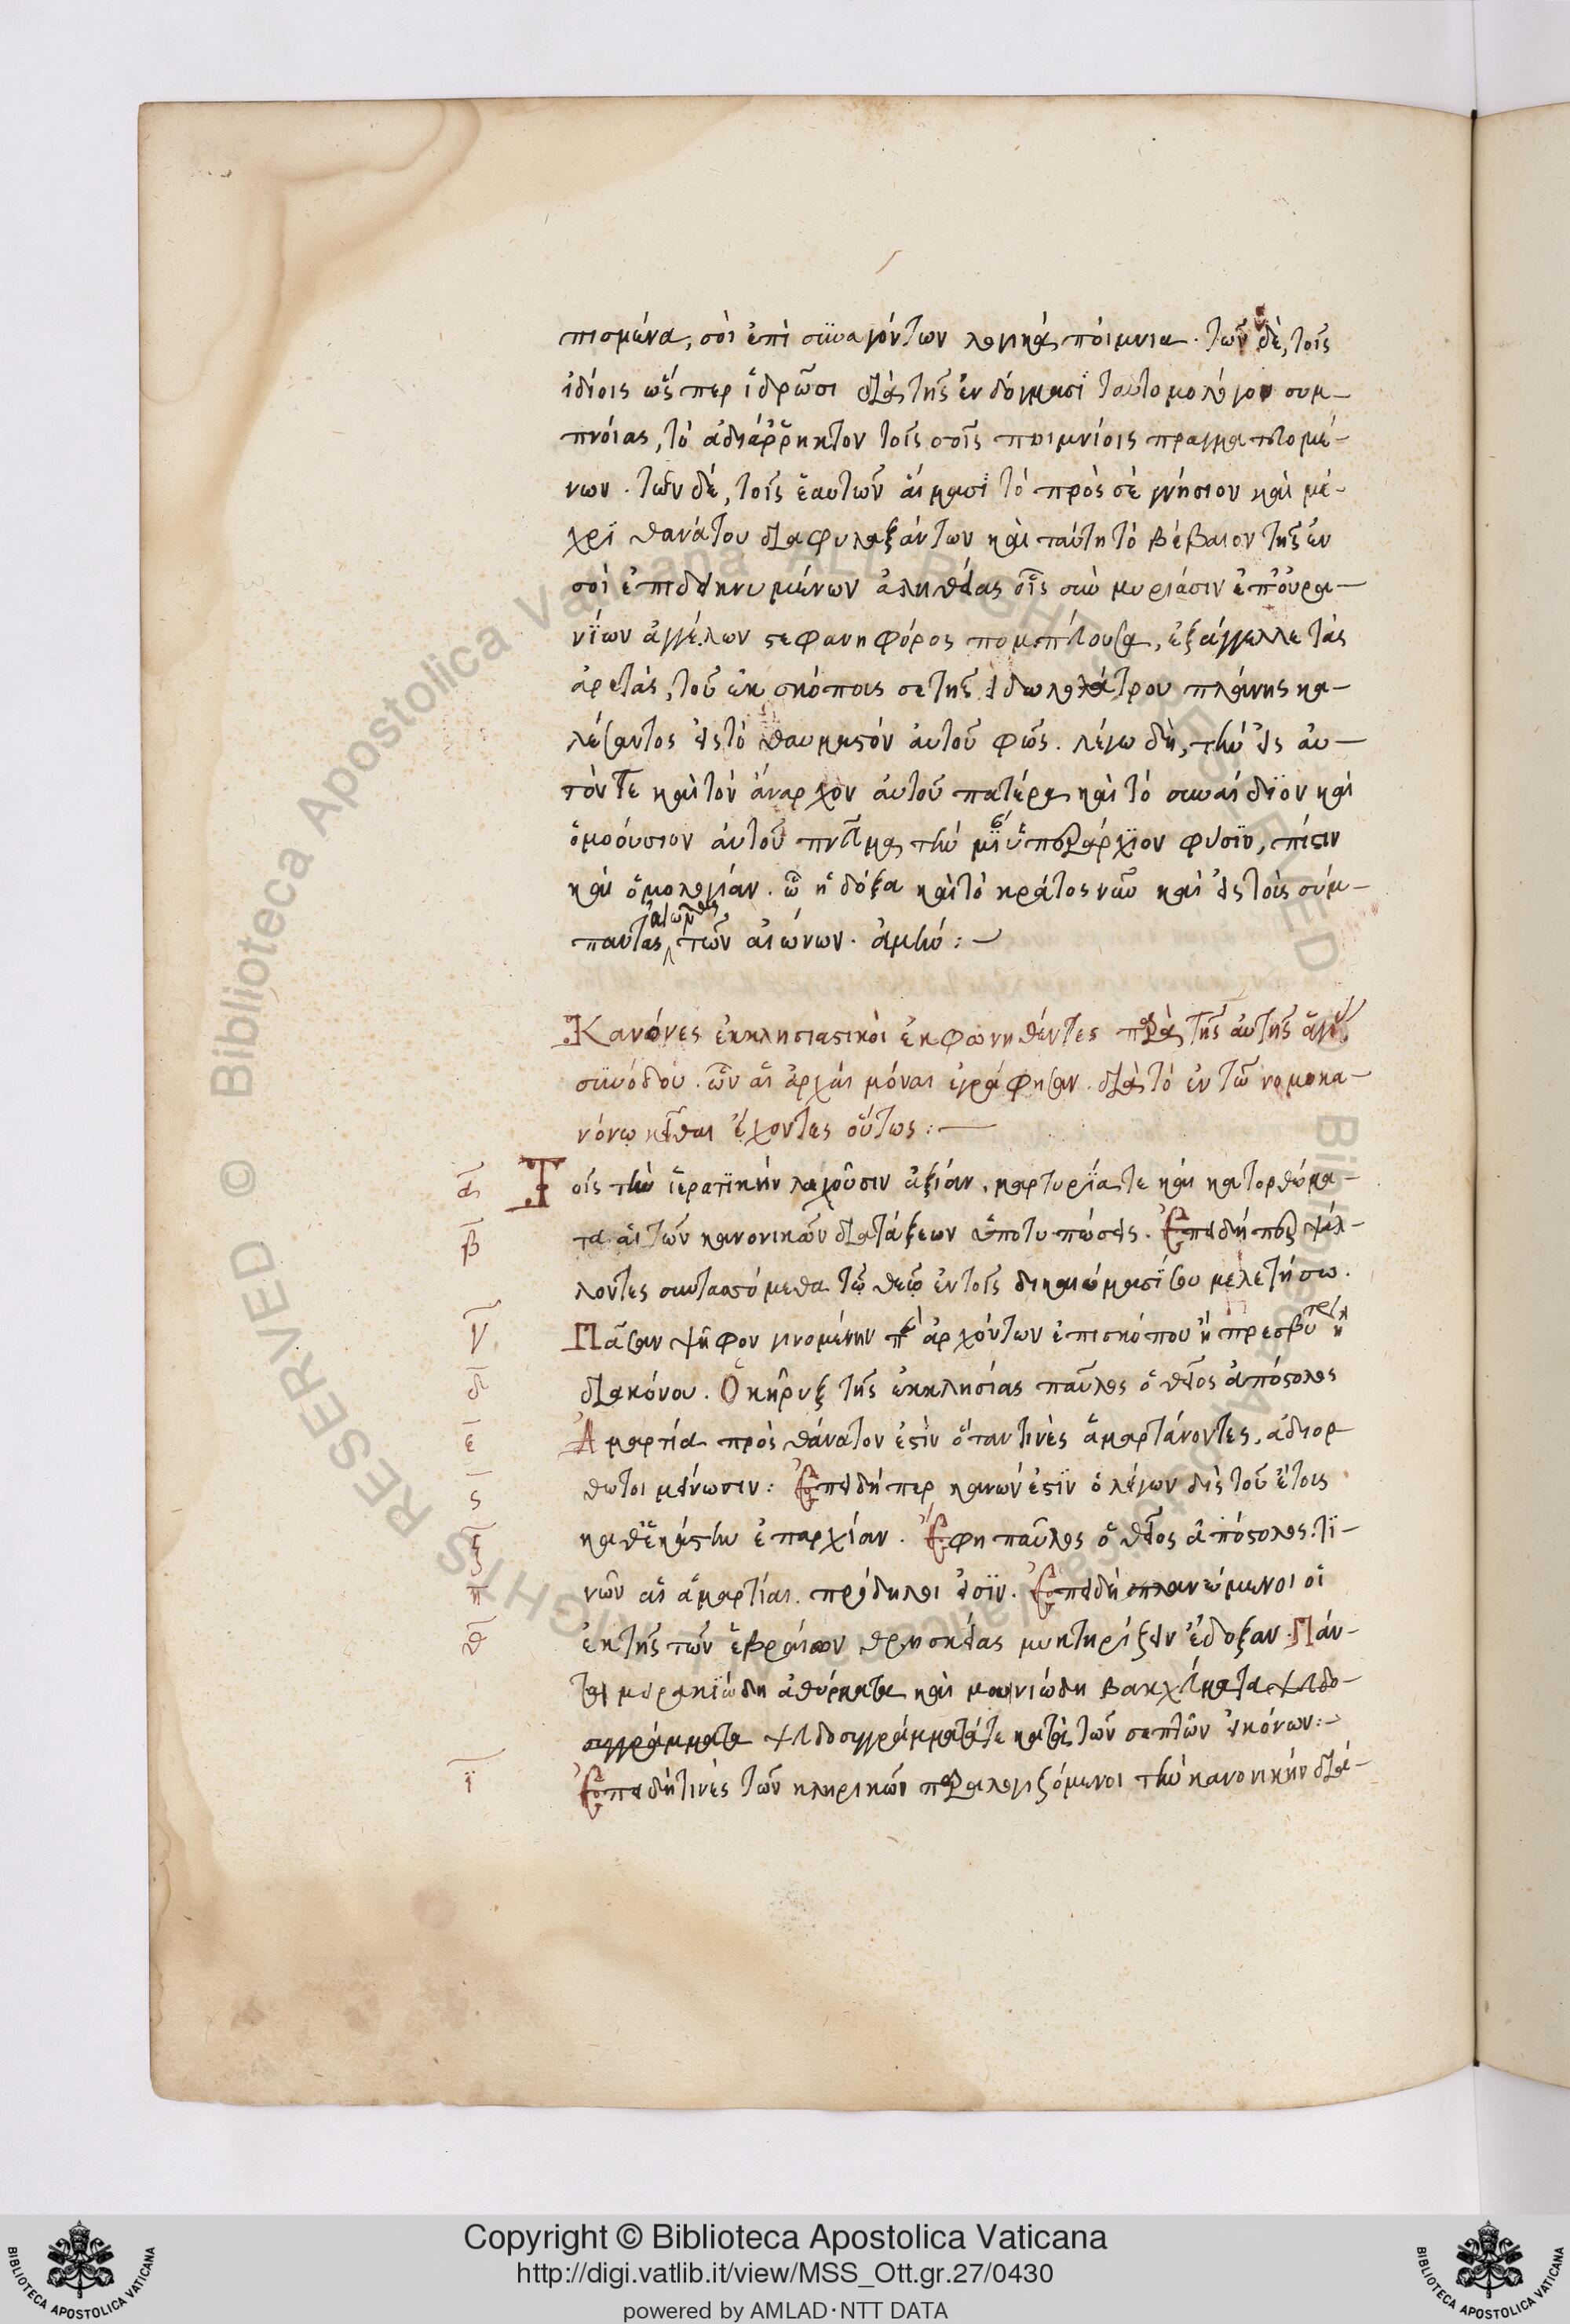 πισμένα, σοὶ ἐπὶ συναγόντων λογικὰ ποίμνια. τῶν δὲ, τοῖς
ἰδίοις ὥσπερ ἱδρῶσι διὰ τῆς ἐν δόγμασι ταυτομολόγου συμ-
πνοίας, τὸ ἀδιάρρηκτον τοῖς σοῖς ποιμνίοις πραγματευομέ-
νων. τῶν δέ, τοῖς ἑαυτῶν αἵμασι τὸ πρὸς σὲ γνήσιον καὶ μέ-
χρι θανάτου διαφυλαξάντων καὶ ταύτη τὸ βέβαιον τῆς ἐν
σοὶ ἐπιδεικνυμένων ἀληθείας οἷς σὺν μυριάσιν ἐπουρα-
νίων ἀγγέλων στεφανηφόρος πομπεύουσα, ἐξάγγελλε τὰς
ἀρετὰς, τοῦ ἐκ σκότους σε τῆς εἰδωλολάτρου πλάνης κα-
λέσαντος εἰς τὸ θαυμαστὸν αὐτοῦ φῶς. λέγω δὴ, τὴν εἰς αὐ-
τόν τε καὶ τὸν ἄναρχον αὐτοῦ πατέρα καὶ τὸ συναΐδιον καὶ
ὁμοούσιον αὐτοῦ πνεῦμα τὴν μίαν ὑπεράρχιον φύσιν, πίστιν
καὶ ὁμολογίαν. ᾧ ἡ δόξα καὶ τὸ κράτος νῦν καὶ εἰς τοὺς σύμ-
παντας αἰῶνας τῶν αἰώνων. ἀμήν:-
Κανόνες ἐκκλησιαστικοὶ ἐκφωνηθέντες παρὰ τῆς αὐτῆς ἁγίας
συνόδου. ὧν αἱ ἀρχαὶ μόναι ἐγράφησαν. διὰ τὸ ἐν τῷ νομοκα-
νόνῳ κεῖσθαι ἔχοντες οὕτως:-
α Τοῖς τὴν ἱερατικὴν λαχοῦσιν ἀξίαν, μαρτυρία τε καὶ κατορθώμα-
β τα αἱ τῶν κανονικῶν διατάξεων ὑποτυπώσεις. Ἐπειδήπερ ψάλ-
λοντες συντασσόμεθα τῷ θεῷ ἐν τοῖς δικαιώμασί σου μελετήσω.
γ Πᾶσαν ψῆφον γινομένην παρὰ ἀρχόντων ἐπισκόπου ἢ πρεσβυτέρου ἢ
δ διακόνου. Ὁ κῆρυξ τῆς ἐκκλησίας παῦλος ὁ θεῖος ἀπόστολος
ε Ἁμαρτία πρὸς θάνατον ἐστὶν ὅταν τινὲς ἁμαρτάνοντες, ἀδιόρ
ς θωτοι μείνωσιν: Ἐπειδήπερ κανών ἐστιν ὁ λέγων δὶς τοῦ ἔτους
ζ καθ' ἑκάστην ἐπαρχίαν. Ἔφη παῦλος ὁ θεῖος ἀπόστολος. τι-
η νῶν αἱ ἁμαρτίαι πρόδηλοι εἰσίν. Ἐπειδὴ πλανώμενοι οἱ
θ ἐκ τῆς τῶν ἑβραίων θρησκείας μυκτηρίζειν ἔδοξαν. Πάν-
τα μειρακιώδη ἀθύρματα καὶ μανιώδη βακχεύματα ψευδο-
συγγράμματα ψευδοσυγγράμματά τε κατὰ τῶν σεπτῶν εἰκόνων:-
ι Ἐπειδή τινὲς τῶν κληρικῶν παραλογιζόμενοι τὴν κανονικὴν διά-
Copyright © Biblioteca Apostolica Vaticana
http://digi.vatlib.it/view/MSS_Ott.gr.27/0430
powered by AMLAD·NTT DATA
BIBLIOTECA APOSTOLICA VATICANA
BIBLIOTECA APOSTOLICA VATICANA